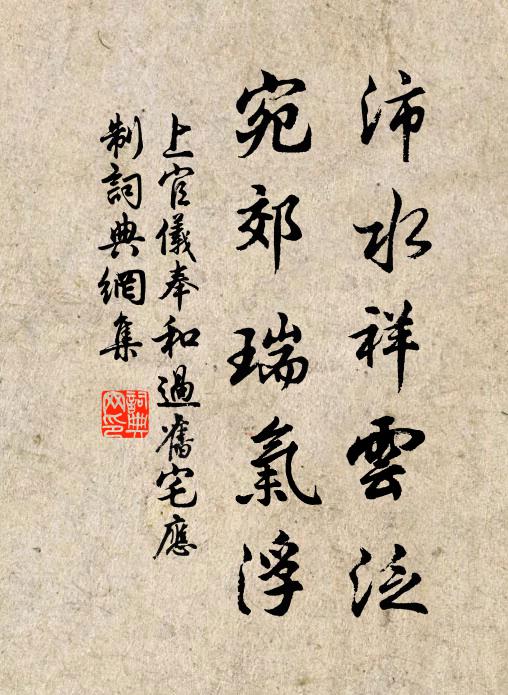 沛水祥雲泛
宛郊瑞氣浮
上官儀奉和過舊宅應
制詞典網集
詞典網印